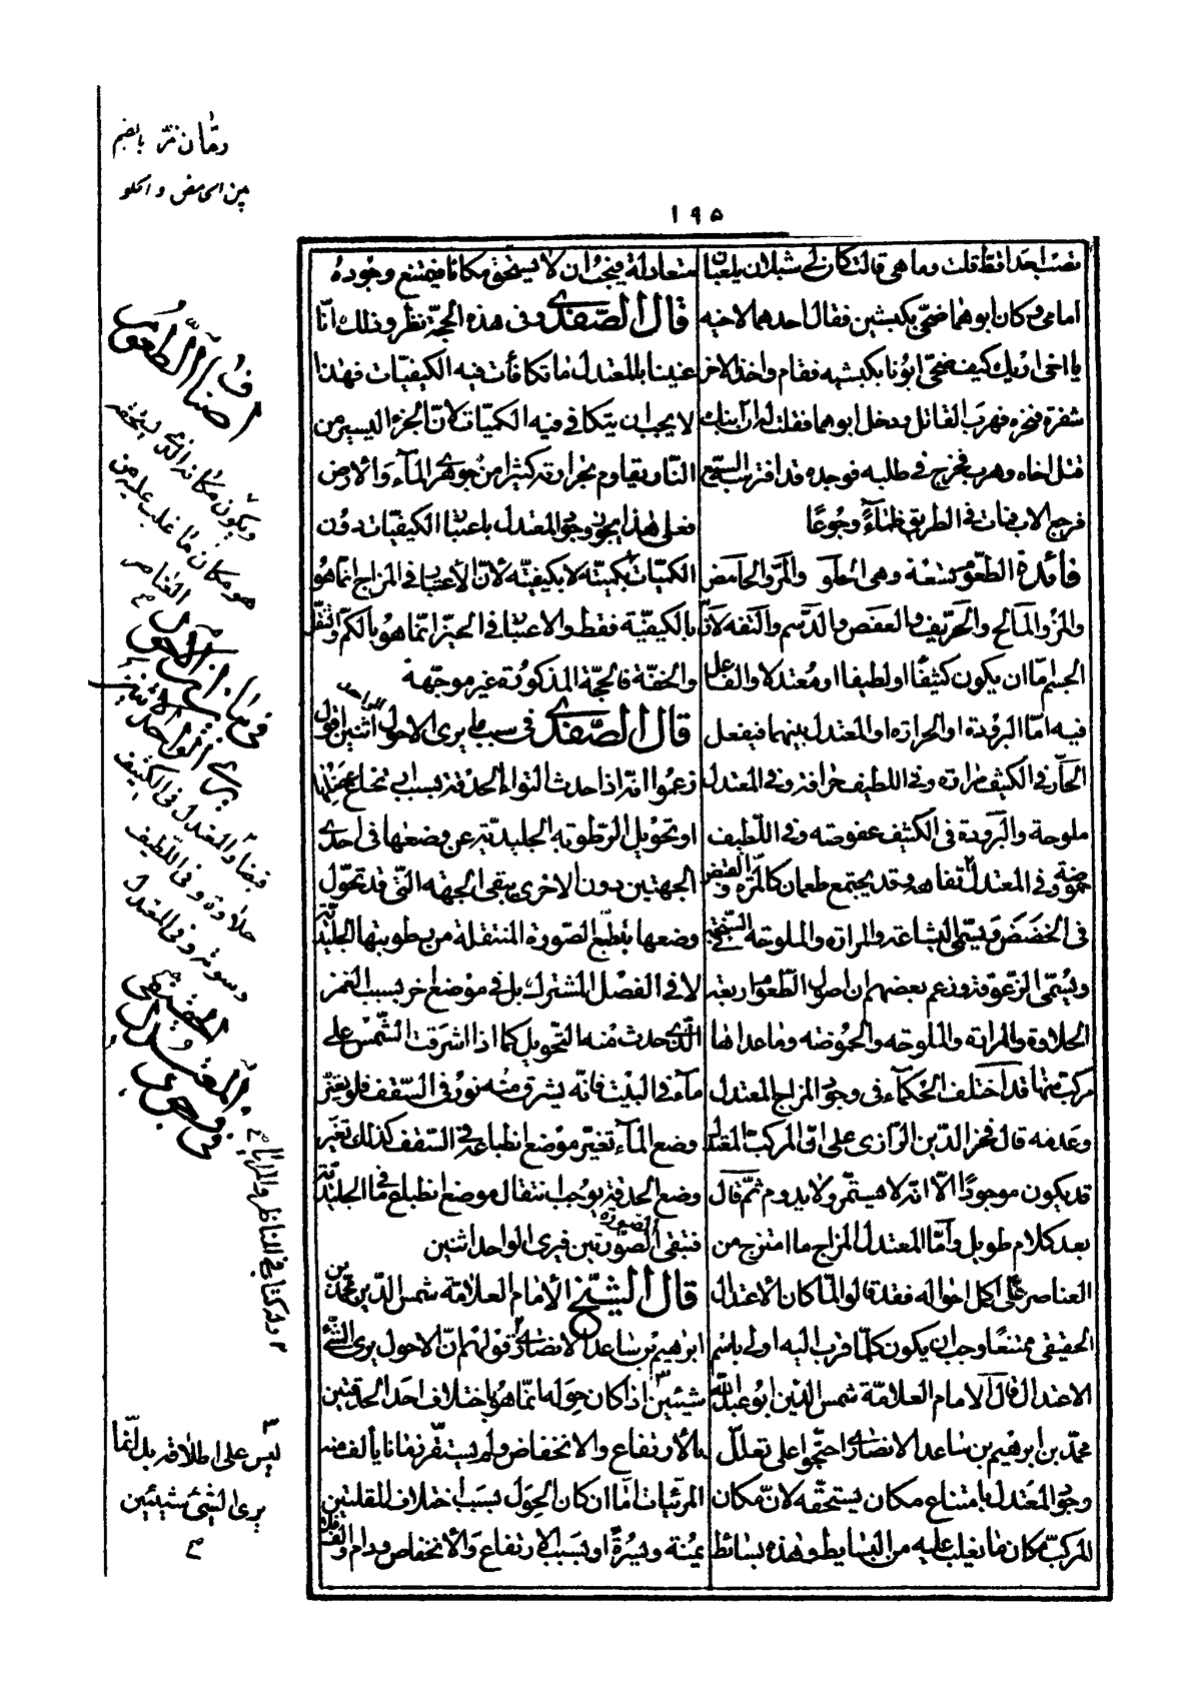 ١٩٥
نصب احدا قط قلت وما هى قالت كان لى شبلان يلعبان
امامى وكان ابوهما ضحّى بكبشين فقال احدهما لاخيه
يا اخى اريك كيف ضحّى ابونا بكبشيه فقام واخذ الاخر
شفرة فنحره فهرب القاتل ودخل ابوهما فقلت له ان ابنك
قتل اخاه وهرب فخرج فى طلبه فوجده قد افترسه السبع
فرجع الاب فمات فى الطريق ظمآءً وجوعًا
فائدة الطعوم تسعة وهى الحلو والمرّ والحامض
والمزّ والمالح والحرّيف والعفص والدسم والتفه لانّ
الجسم امّا ان يكون كثيفًا او لطيفا او معتدلا والفاعل
فيه امّا البرودة او الحرارة او المعتدل بينهما فيفعل
الحارّ فى الكثيف مرارة وفى اللطيف حرافة وفى المعتدل
ملوحة والبرودة فى الكثيف عفوصة وفى اللّطيف
حموضة وفى المعتدل تفاهة وقد يجتمع طعمان كالمرارة والقبض
فى الحضض ويسمّى البشاعة والمرارة والملوحة فى السّبخة
ويسمّى الزّعوقة وزعم بعضهم ان اصول الطّعوم اربعة
الحلاوة والمرارة والملوحة والحموضة وما عداها
مركب منها قد اختلف الحكمآء فى وجود المزاج المعتدل
وعدمه قال فخر الدّين الرّازى على انّ المركب المعتدل
قد يكون موجودًا الّا انّه لا يستمّر ولا يدوم ثمّ قال
بعد كلام طويل وأمّا المعتدل المزاج ما امتزج من
العناصر على اكمل احواله فقد قالوا لمّا كان الاعتدال
الحقيقى ممتنعًا وجب ان يكون كلّما قرب اليه اولى باسم
الاعتدال قال الامام العلامّة شمس الدّين ابو عبد الله
محمّد بن ابرهيم بن ساعد الانصارى احتجّوا على تعلّل
وجود المعتدل بامتناع مكان يستحقّه لانّ مكان
المركّب مكان ما يغلب عليه من البسايط وهذه بسائط
متعادلة فيجب ان لا يستحقّ مكانا فيمتنع وجوده
قال الصّفدى وفى هذه الحجّة نظر وذلك انّا
عنينا بالمعتدل ما تكافأت فيه الكيفيّات فهذا
لا يجب ان يتكافى فيه الكميّات لانّ الجزء اليسير من
النّار يقاوم بحرارته كثيرا من جوهرى المآء والارض
فعلى هذا يجوز وجود المعتدل باعتبار الكيفيّات دون
الكميّات بكميّته لا بكيفيّته لانّ الاعتبار فى المزاج انّما هو
بالكيفيّة فقط والاعتبار فى الحيّز انّما هو بالكمّ والثقل
والخفّة فالحجّة المذكورة غير موجّهة
قال الصّفدى فى سبب ما يرى الاحول الواحد اثنين اقول
زعموا انّه اذا حدث التواء للحدقة بسبب
او تحويل الرّطوبة الجليديّة عن وضعها فى احدى
الجهتين دون الاخرى يبقى الجهة التّى قد تحوّل
وضعها ينطبع الصّورة المنتقلة من رطوبتها الجليديّة
لا فى الفصل المشترك بل فى موضع اخر بسبب الغمز
الّذى حدث منه التّحويل كما اذا اشرقت الشّمس على
مآء فى البيت فانّه يشرق منه نور فى السّقف فلو تغيّر
وضع المآء تغيّر موضع انطباعه فى السّقف كذلك تغيّر
وضع الحدقة يوجب انتقال موضع انطباع ما فى الجليديّة
فتبقى الصّورة صورتين فيرى الواحد اثنين
قال الشّيخ الأمام العلّامة شمس الدّين محمّد بن
ابرهيم بن ساعد الانصارى قولهم انّ الاحول يرى الشّئ
شيئين اذا كان حوله انّما هو باختلاف احد الحدقتين
بالأرتفاع والانخفاض ولم يستقّر زمانا يألف فيه
المرئيات امّا ان كان الحول بسبب اختلاف المقلتين
يمنة ويسرةً او بسبب الارتفاع والانخفاض ودام والف
ورمّان مزّ بالضم
بين الحامض والحلو
اصناف الطعوم
ويكون مكانه الذى يستحقه
هو مكان ما غلب عليه من
العناصر
فى بيان ان الاحول
يرى الواحد الاثنين
قبضًا والمعتدل فى الكثيف
حلاوة وفى اللّطيف
دسومة وفى المعتدل
فى وجود المعتدل
الحقيقى
وله كتاب فى المناظر والمرايا
ليس على اطلاقه بل انّما
يرى الشئ شيئين